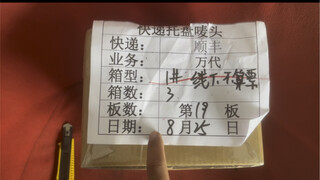 快递托盘唛头
快递： 顺丰
业务： 万代
箱型： 1# 线下不算票
箱数： 3
板数： 第19板
日期： 8月25日